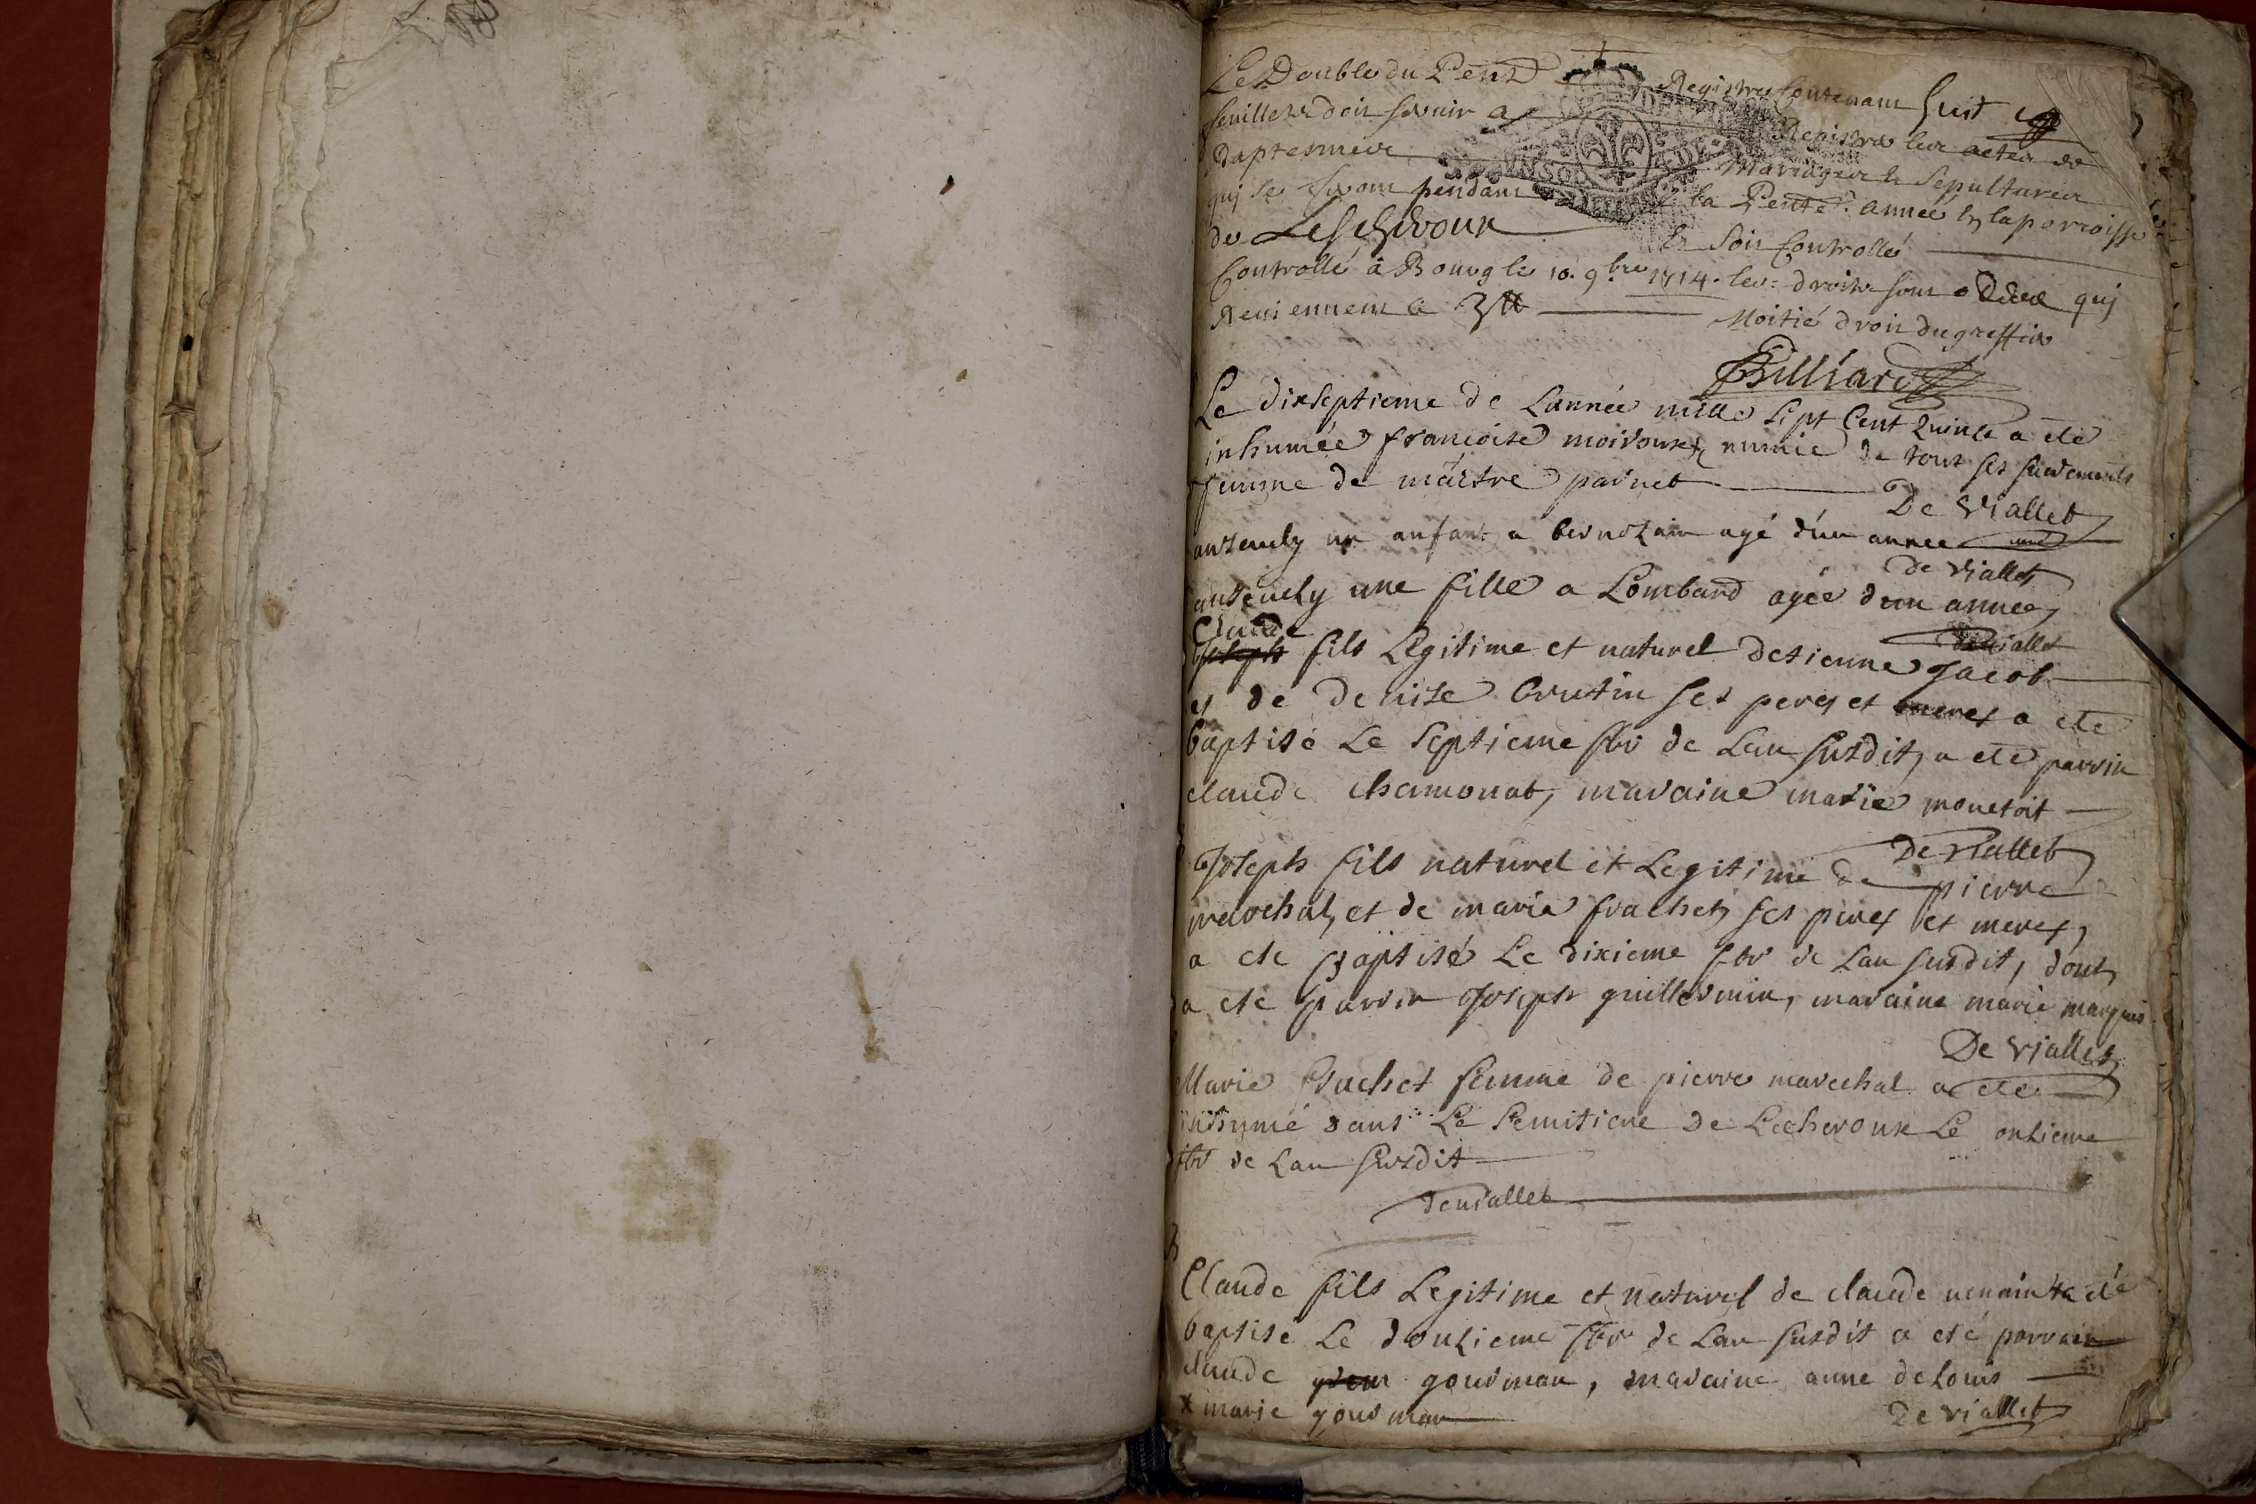 Le Double du Pent Registre Contenant huit
feuillets doit servir a Registre les actes de
Baptesmes Mariages & Sepultures
qui se feront pendant la Pente année en la parroisse
de Lescheroux & Soit Controllé
Controllé à Bourg le 10. 9bre 1714. les droits sont qui
Reviennent a 3tt Moitié droit du greffier
Billiard
Le dixseptieme de Lannée mille sept Cent quinse a eté
inhumée francoise munie de tout ses sacrements
femme de maitre parnet
De Viallet
un anfant a agé d'un année
de viallet
une fille a Lombard agée dun année
deviallet
Claude
Joseph fils Legitime et naturel detienne Jacob
et de Denise brutin ses peres et meres a eté
baptisé Le septieme fbr de Lan susdit, a eté parrin
claude chamonat, maraine marie monetoit
De viallet
Joseph fils naturel et Legitime de pierre
marechal, et de maria frachet ses peres et meres,
a ete Baptisé Le dixieme fbr de Lan susdit, dont
a ete parrin Joseph guillermin, maraine marie marquis
De viallet
Marie frachet femme de pierre marechal a eté
inhumé dans Le semitiere De Lecheroux Le onzieme
fbr de Lan susdit
deviallet
Claude fils Legitime et naturel de claude a eté
baptisé Le douzieme fbr de Lan susdit a eté parrain
claude gourman, maraine anne delouis
x marie gourman De viallet